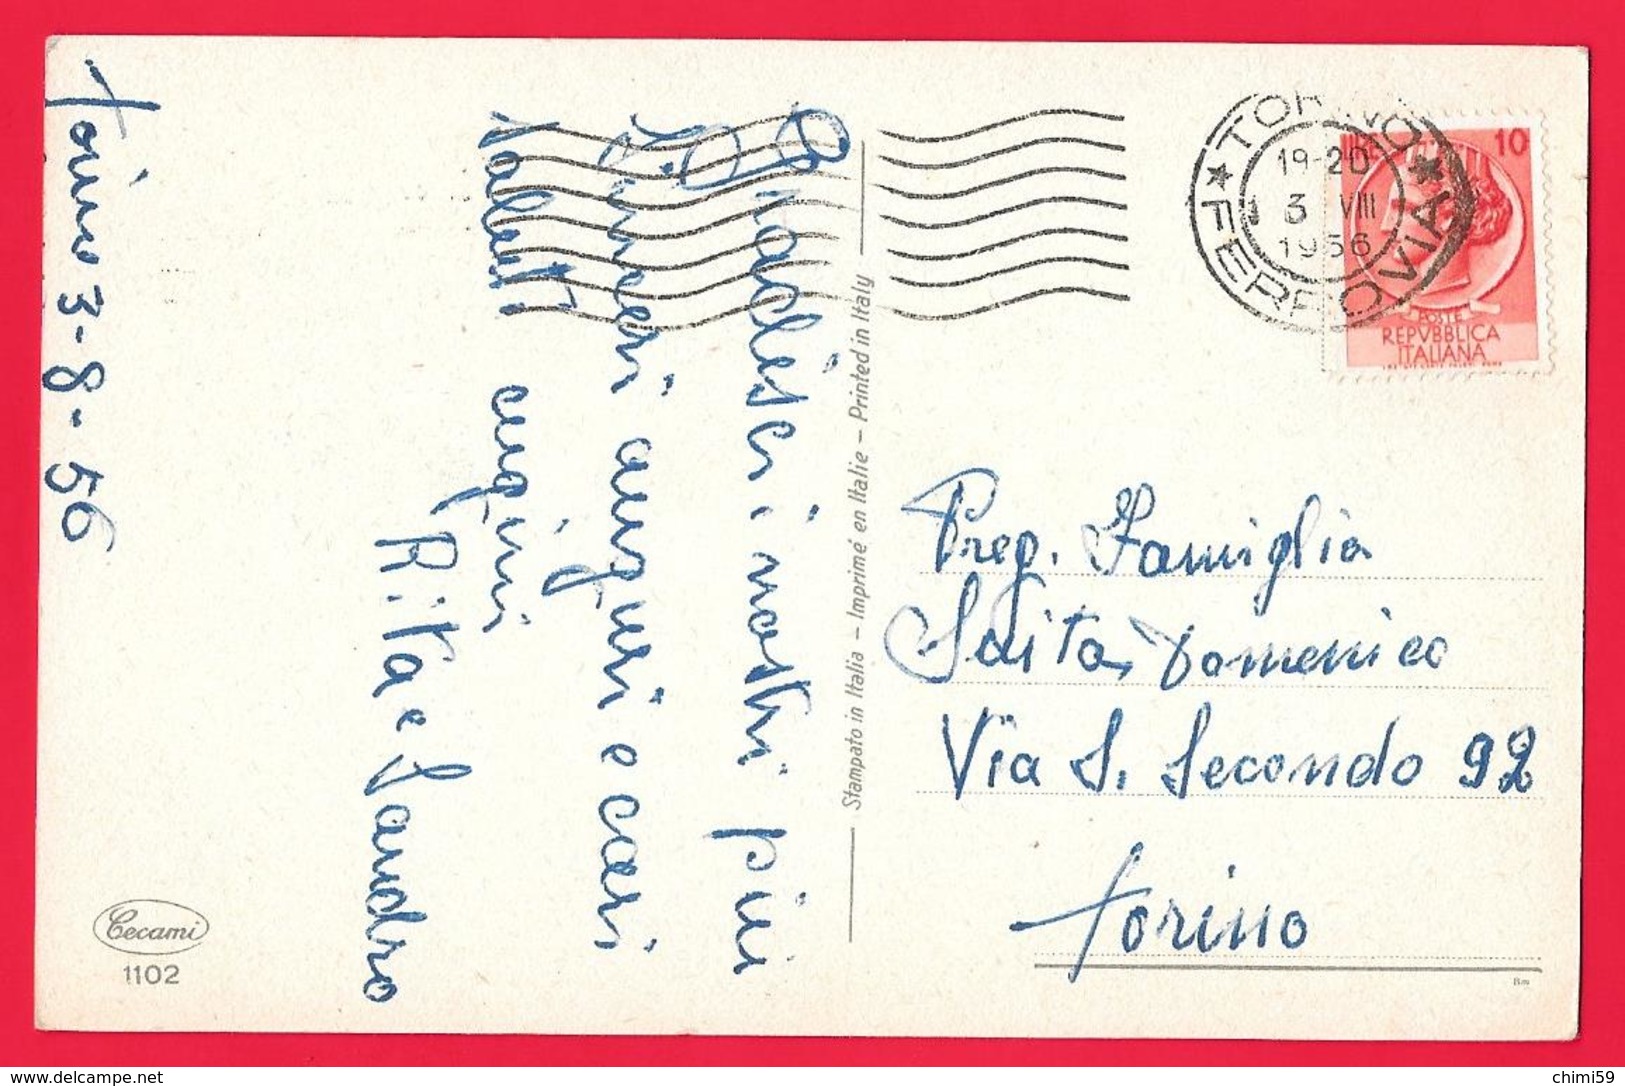 Torino 3-8-56
Gradisci i nostri più
sinceri auguri e cari
saluti cugini
Rita e Sandro
Cecami
1102
Stampato in Italia – Imprimé en Italie – Printed in Italy
TORINO
FERROVIA
19-20
3 VIII
1956
10
POSTE
REPVBBLICA
ITALIANA
Preg. Famiglia
Saitta Domenico
Via S. Secondo 92
Torino
delcampe.net
chimi59